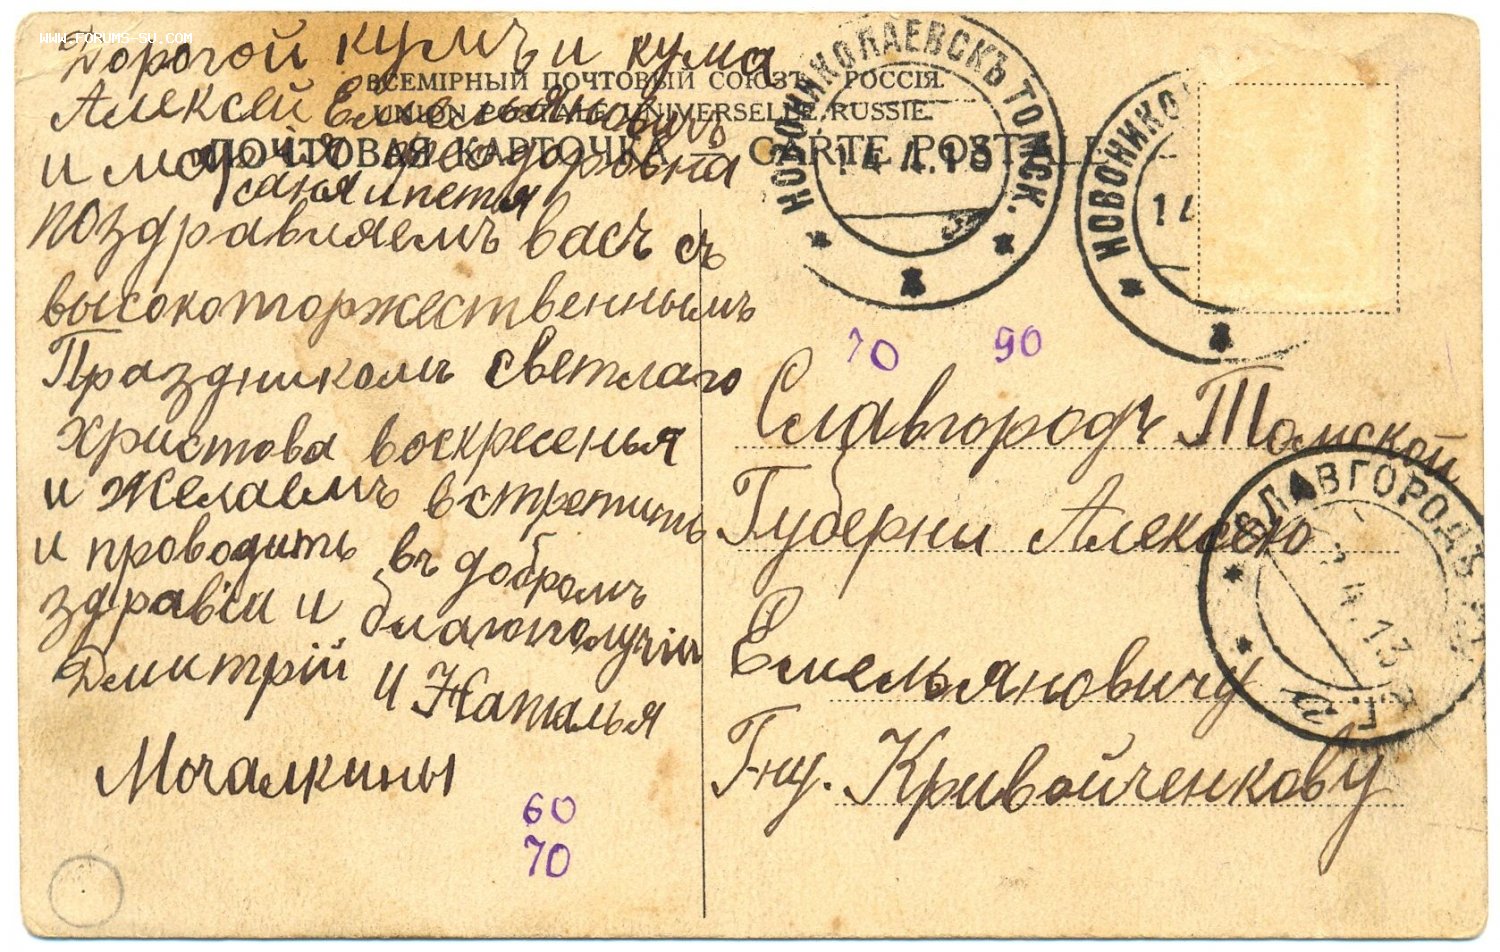 WWW.FORUMS-SU.COM
Дорогой кумъ и кума
Алексей Емельяновичъ
и мария феодоровна
саня и петя
поздравляемъ васъ съ
высокоторжественнымъ
Праздникомъ светлаго
христова воскресенья
и желаемъ встретить
и проводить въ добромъ
здравіи и благополучіи
Дмитрій и Наталья
Мочалкины
60
70
ВСЕМІРНЫЙ ПОЧТОВЫЙ СОЮЗЪ. РОССІЯ.
UNION POSTALE UNIVERSELLE. RUSSIE.
ПОЧТОВАЯ КАРТОЧКА — CARTE POSTALE
НОВОНИКОЛАЕВСКЪ ТОМСК.
14.4.13
НОВОНИКО
14
70 90
Славгородъ Томской
Губерни Алексею
Емельяновичу
Г-ну. Кривойченкову
СЛАВГОРОДЪ
4.13